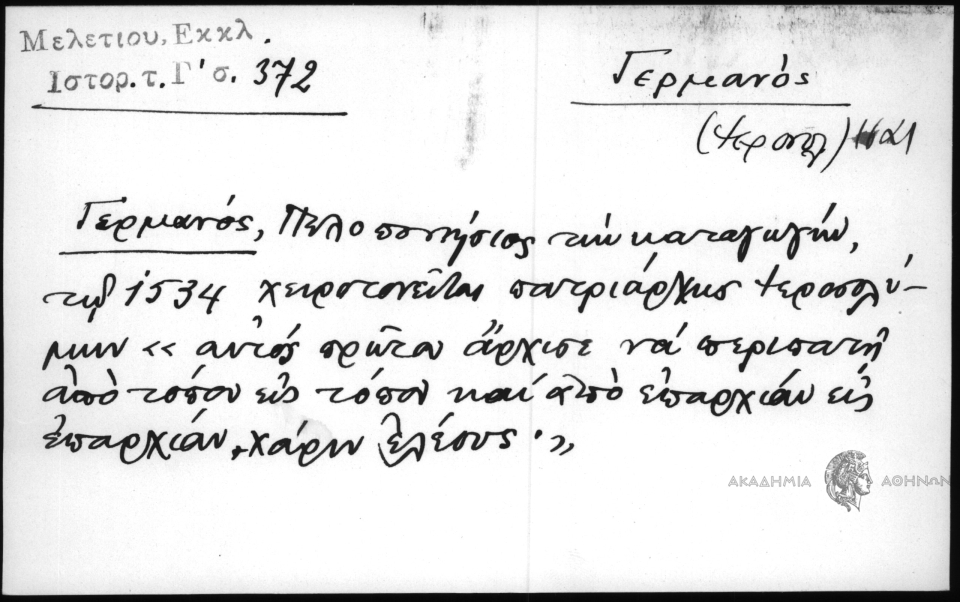 Μελετίου, Εκκλ.
Ιστορ. τ. Γ' σ. 372
Γερμανός
(Ἱεροσολ)
Γερμανός, Πελοποννήσιος τὴν καταγωγήν,
τῷ 1534 χειροτονεῖται πατριάρχης Ἱεροσολύ-
μων « αὐτός πρῶτον ἄρχισε νά περιπατῇ
ἀπό τόπον εἰς τόπον καί ἀπό ἐπαρχίαν εἰς
ἐπαρχίαν, χάριν ἐλέους. »
ΑΚΑΔΗΜΙΑ ΑΘΗΝΩΝ